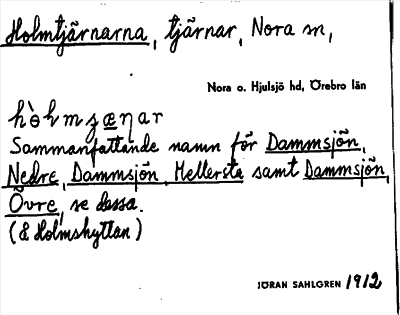 Holmtjärnarna, tjärnar, Nora sn,
Nora o. Hjulsjö hd, Örebro län
Sammanfattande namn för Dammsjön,
Nedre, Dammsjön, Mellersta samt Dammsjön,
Övre, se dessa.
(8 Holmshyttan)
JÖRAN SAHLGREN 1912